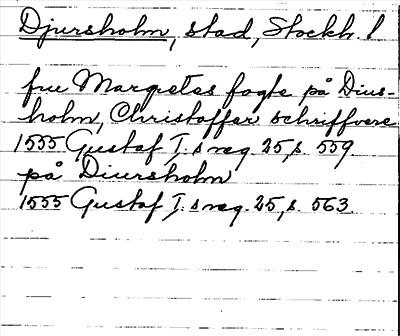 Djursholm, stad, Stockh. l
fru Margretes fogte på Dius-
holm, Christoffer schriffvere
1555 Gustaf I:s reg. 25, s. 559.
på Diursholm
1555 Gustaf I:s reg. 25, s. 563.